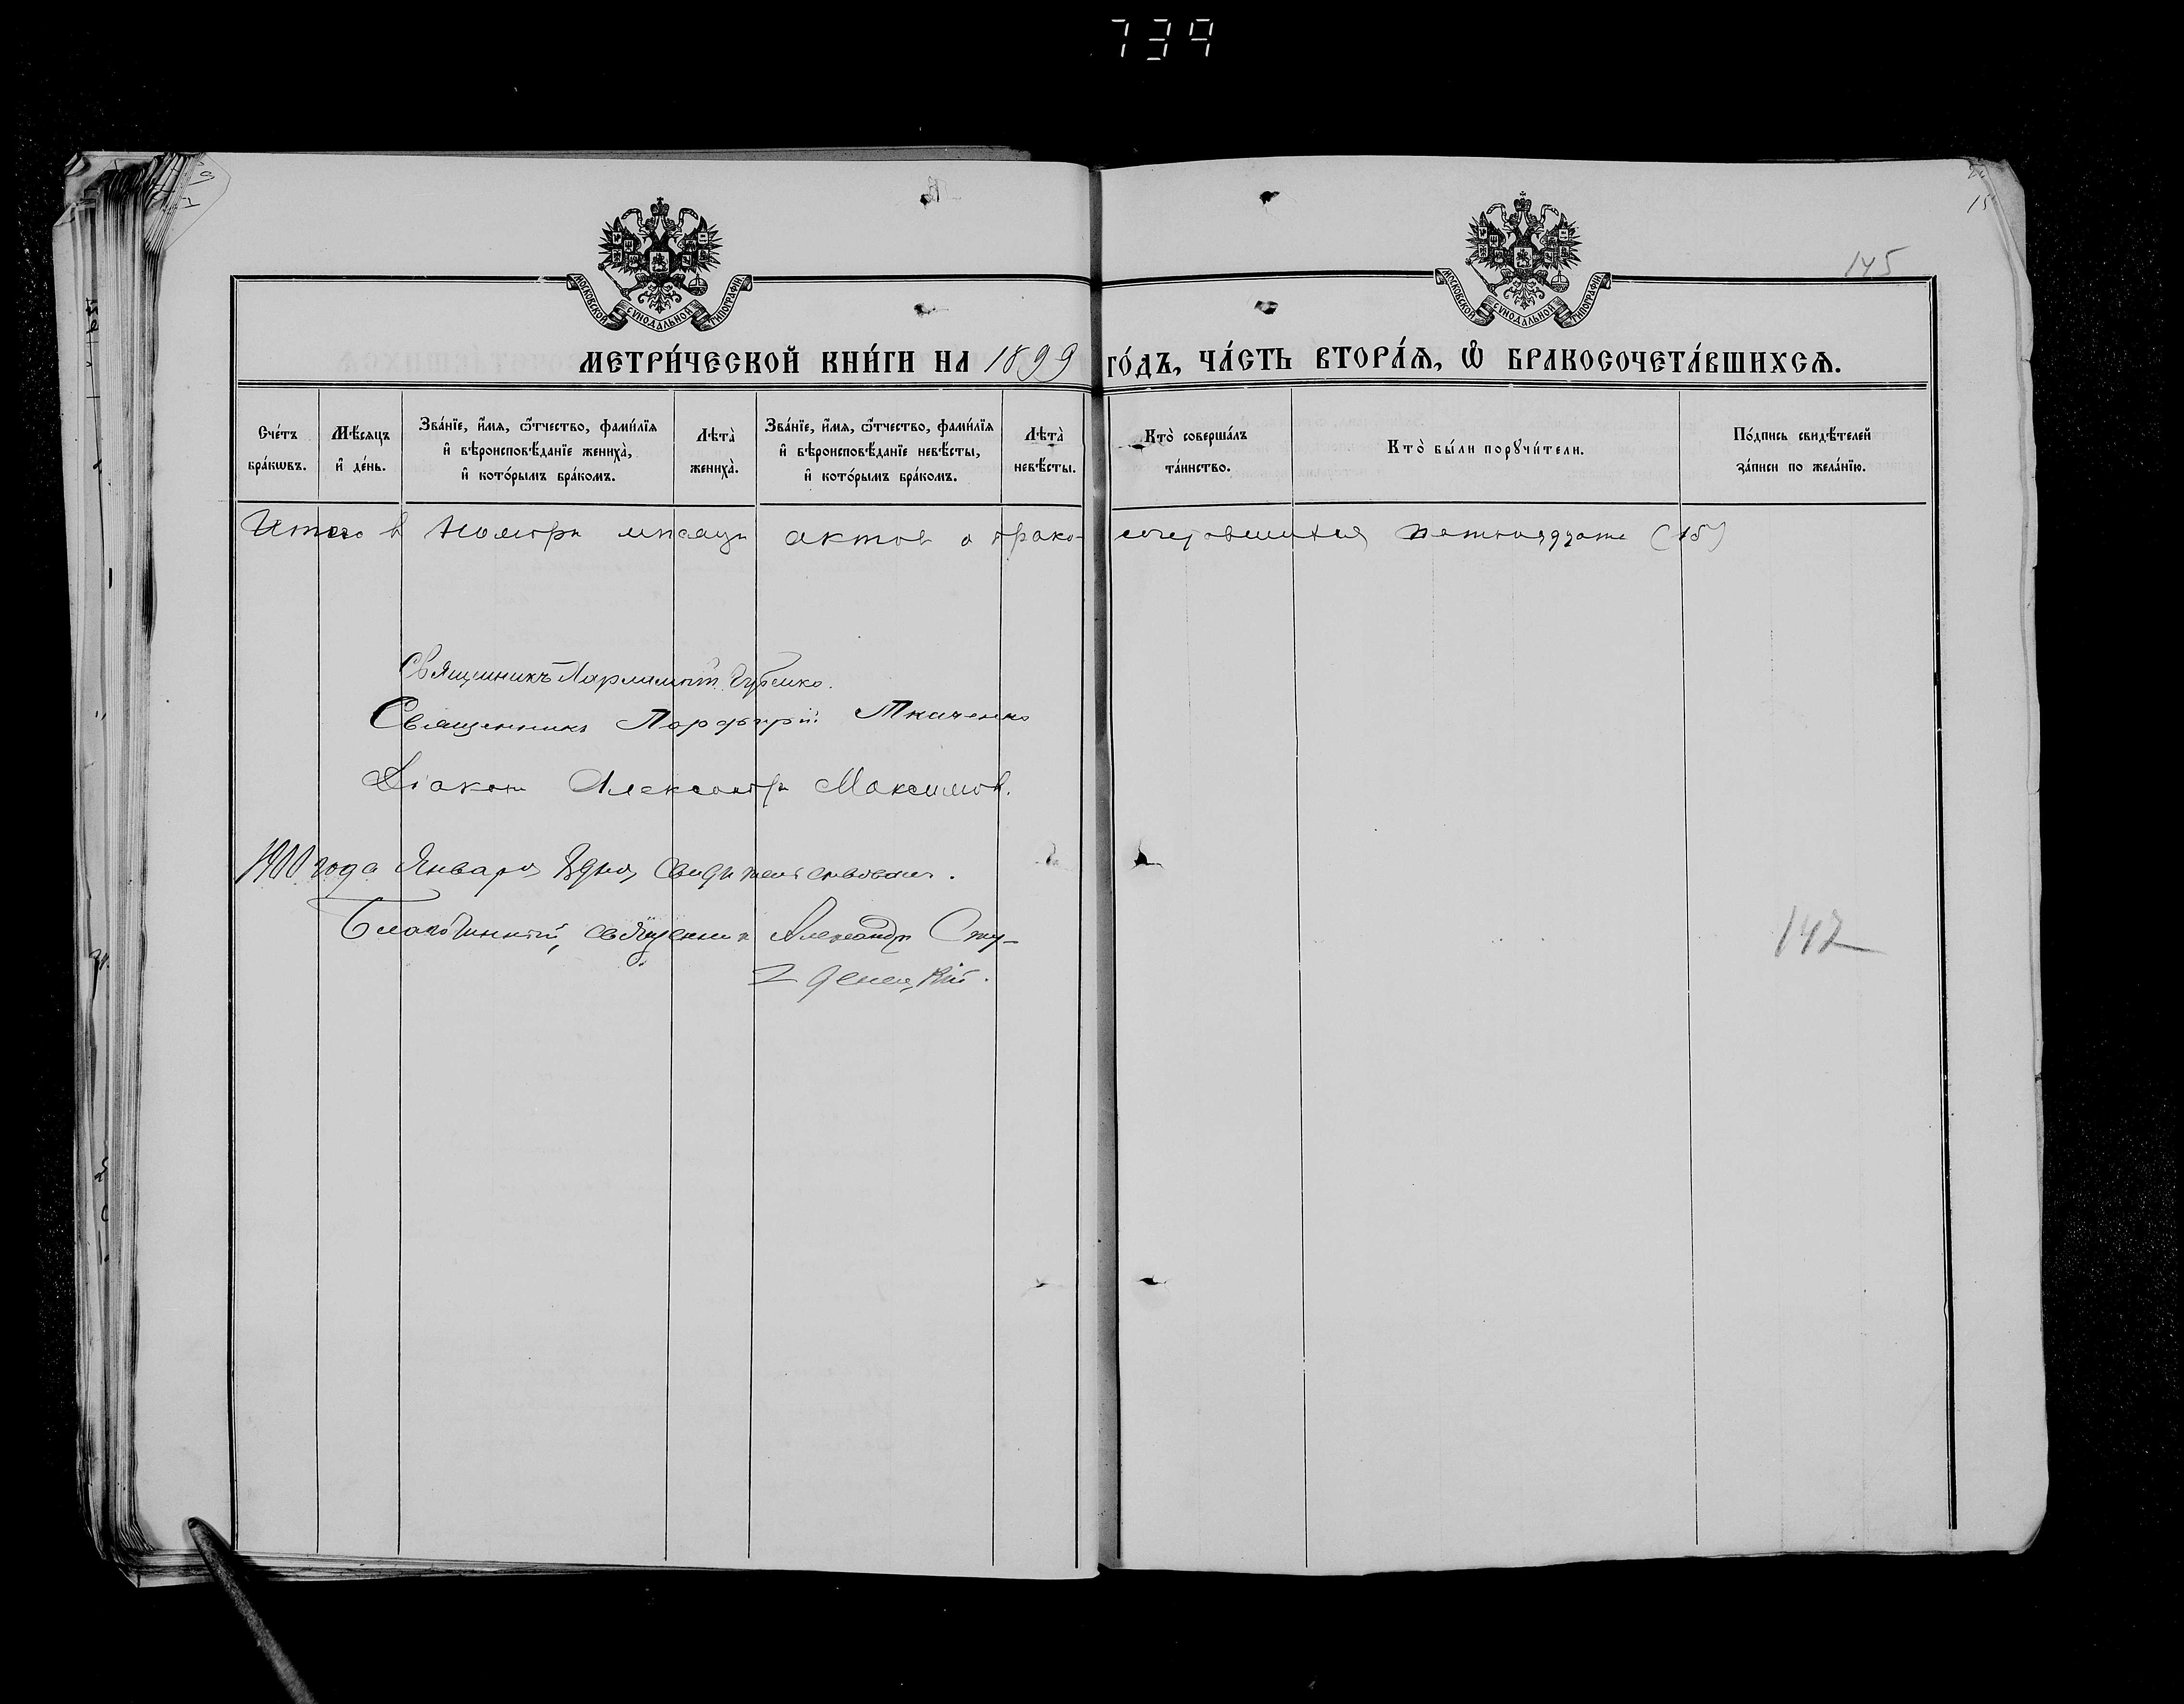 739
15
145
МОСКОВСКОЙ СѴНОДАЛЬНОЙ ТИПОГРАФІИ
МОСКОВСКОЙ СѴНОДАЛЬНОЙ ТИПОГРАФІИ
МЕТРИ́ЧЕСКОЙ КНИ́ГИ НА 1899 ГО́ДЪ, ЧА́СТЬ ВТОРА́Ѧ, Ѽ БРАКОСОЧЕТА́ВШИХСѦ.
Сче́тъ бра́кѡвъ.
Мѣ́сяцъ и҆ де́нь.
Зва́нїе, и҆́мя, ѻ҆́тчество, фами́лїя и҆ вѣроисповѣ́данїе жениха̀, и҆ кото́рымъ бра́комъ.
Лѣта̀ жениха̀.
Зва́нїе, и҆́мя, ѻ҆́тчество, фами́лїя и҆ вѣроисповѣ́данїе невѣ́сты, и҆ кото́рымъ бра́комъ.
Лѣта̀ невѣ́сты.
Кто̀ соверша́лъ та́инство.
Кто̀ бы́ли порꙋчи́тели.
По́дпись свидѣ́телей за́писи по жела́нїю.
Итого в Ноябрѣ мѣсяцѣ актов о бракосочетавшихся пятнадцать (15)
Священникъ Харлампій Губенко.
Священникъ Порфирій Ткаченко
Діаконъ Александръ Максимов.
1900 года Января дня, свидѣтельствовалъ.
Благочинный, священникъ Александръ Сту-
денецкій.
147